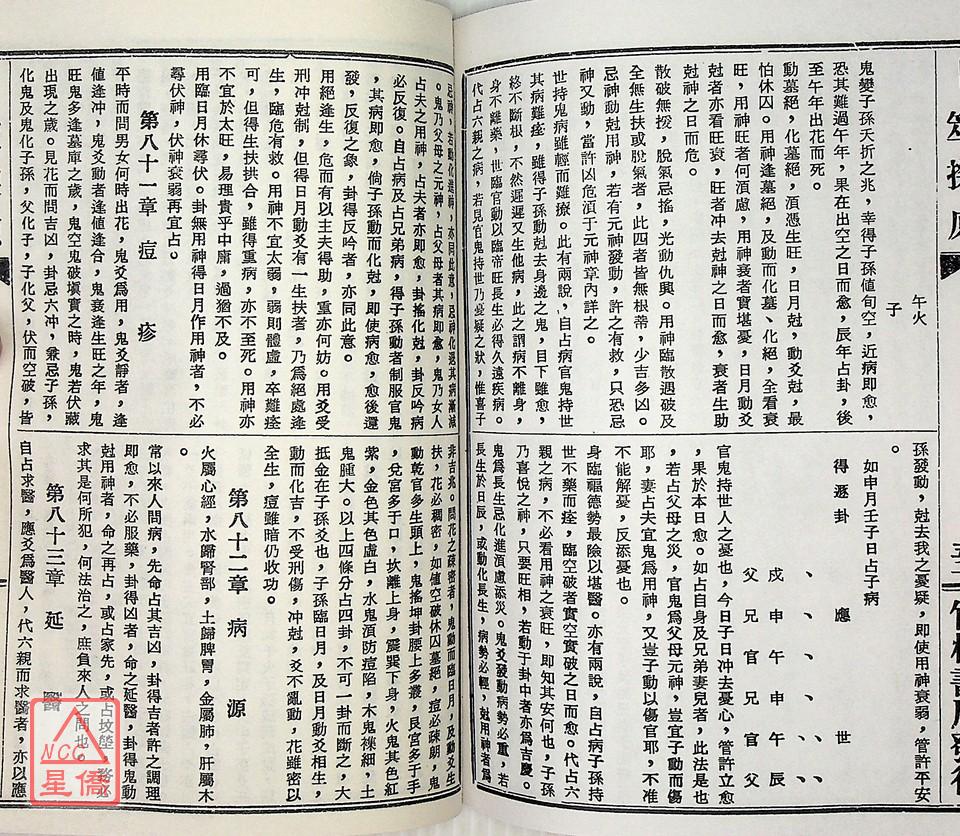 午火
子
鬼變子孫夭折之兆,幸得子孫值旬空,近病即愈,
恐其難過午年,果在出空之日而愈,辰年占卦,後
至午年出花而死。
動墓絕,化墓絕,須憑生旺,日月尅,動爻尅,最
怕休囚。用神逢墓絕,及動而化墓、化絕,全看衰
旺,用神旺者何須慮,用神衰者實堪憂,日月動爻
尅者亦看旺衰,旺者冲去尅神之日而愈,衰者生助
尅神之日而危。
散破無援,脫氣忌搖,光動仇興。用神臨散遇破及
全無生扶或脫氣者,此四者皆無根蒂,少吉多凶。
忌神動尅用神,若有元神發動,許之有救,只恐忌
神又動,當許凶危須于元神章內詳之。
世持鬼病雖輕而難療。此有兩說,自占病官鬼持世
其病難痊,雖得子孫動尅去身邊之鬼,目下雖愈,
終不斷根,不然遲遲又生他病,此之謂病不離身,
身不離藥,世臨官動以臨帝旺長生必得久遠疾病。
代占六親之病,若見官鬼持世乃憂疑之狀,惟喜子
孫發動,尅去我之憂疑,即使用神衰弱,管許平安
。
如申月壬子日占子病
得遯卦 應 世
戌 申 午 申 午 辰
父 兄 官 兄 官 父
官鬼持世人之憂也,今日子日冲去憂心,管許立愈
,果於本日愈。如占自身及兄弟妻兒者,此法是也
,若占父母之災,官鬼為父母元神,豈宜子動而傷
耶,妻占夫宜鬼為用神,又豈子動以傷官耶,不準
不能解憂,反添憂也。
身臨福德勢最險以堪醫。亦有兩說,自占病子孫持
世不藥而痊,臨空破者實空實破之日而愈。代占六
親之病,不必看用神之衰旺,即知其安何也,子孫
乃喜悅之神,只要旺相,若動于卦中者亦為吉慶。
鬼為長生忌化進須慮添災。鬼爻發動病勢必重,若
長生於日辰,或動化長生,病勢必輕,尅用神者為
忌神,若動化進神,亦同此意,忌神化退其病漸減
。鬼乃父母之元神,占父母者其病即愈,鬼乃女人
占夫之用神,占夫者亦即愈,卦搖化尅,卦反吟病
必反復。自占病及占兄弟病,得子孫動者制服官鬼
,其病即愈,倘子孫動而化尅,即使病愈,愈後還
發,反復之象,卦得反吟者,亦同此意。
用絕逢生,危而有以主夫得助,重亦何妨。用爻受
刑冲尅制,但得日月動爻有一生扶者,乃為絕處逢
生,臨危有救。用神不宜太弱,弱則體虛,卒難痊
可,但得生扶拱合,雖得重病,亦不至死。用神亦
不宜於太旺,易理貴乎中庸,過猶不及。
用臨日月休尋伏。卦無用神得日月作用神者,不必
尋伏神,伏神衰弱再宜占。
第八十一章 痘 疹
平時而問男女何時出花,鬼爻為用,鬼爻靜者,逢
值逢冲,鬼爻動者逢值逢合,鬼衰逢生旺之年,鬼
旺鬼多逢墓庫之歲,鬼空鬼破塡實之時,鬼若伏藏
出現之歲。見花而問吉凶,卦忌六冲,兼忌子孫,
化鬼及鬼化子孫,父化子,子化父,伏而空破,皆
非吉兆。問花之疎密者,鬼動而臨日月,及動爻生
扶,花必稠密,如値空破休囚墓絕,痘必疎朗,鬼
動乾宮多生頭上,鬼搖坤卦腰上多叢,艮宮多于手
,兌宮多于口,坎離上身,震巽下身,火鬼其色紅
紫,金色其色虛白,水鬼須防痘陷,木鬼㾕細,土
鬼腫大。以上四條分占四卦,不可一卦而斷之,大
抵金在子孫爻也,子孫臨日月,及日月動爻相生,
動而化吉,不受刑傷,冲尅,爻不亂動,花雖密以
全生,痘雖暗仍收功。
第八十二章 病 源
火屬心經,水歸腎部,土歸脾胃,金屬肺,肝屬木
。
常以來人問病,先命占其吉凶,卦得吉者許之調理
即愈,不必服藥,卦得凶者,命之延醫,卦得鬼動
尅用神者,命之再占,或占家先,或占坟塋,務必
求其是何所犯,何法治之,庶負來人之問也。
第八十三章 延 醫
自占求醫,應爻為醫人,代六親而求醫者,亦以應
NCC
星僑